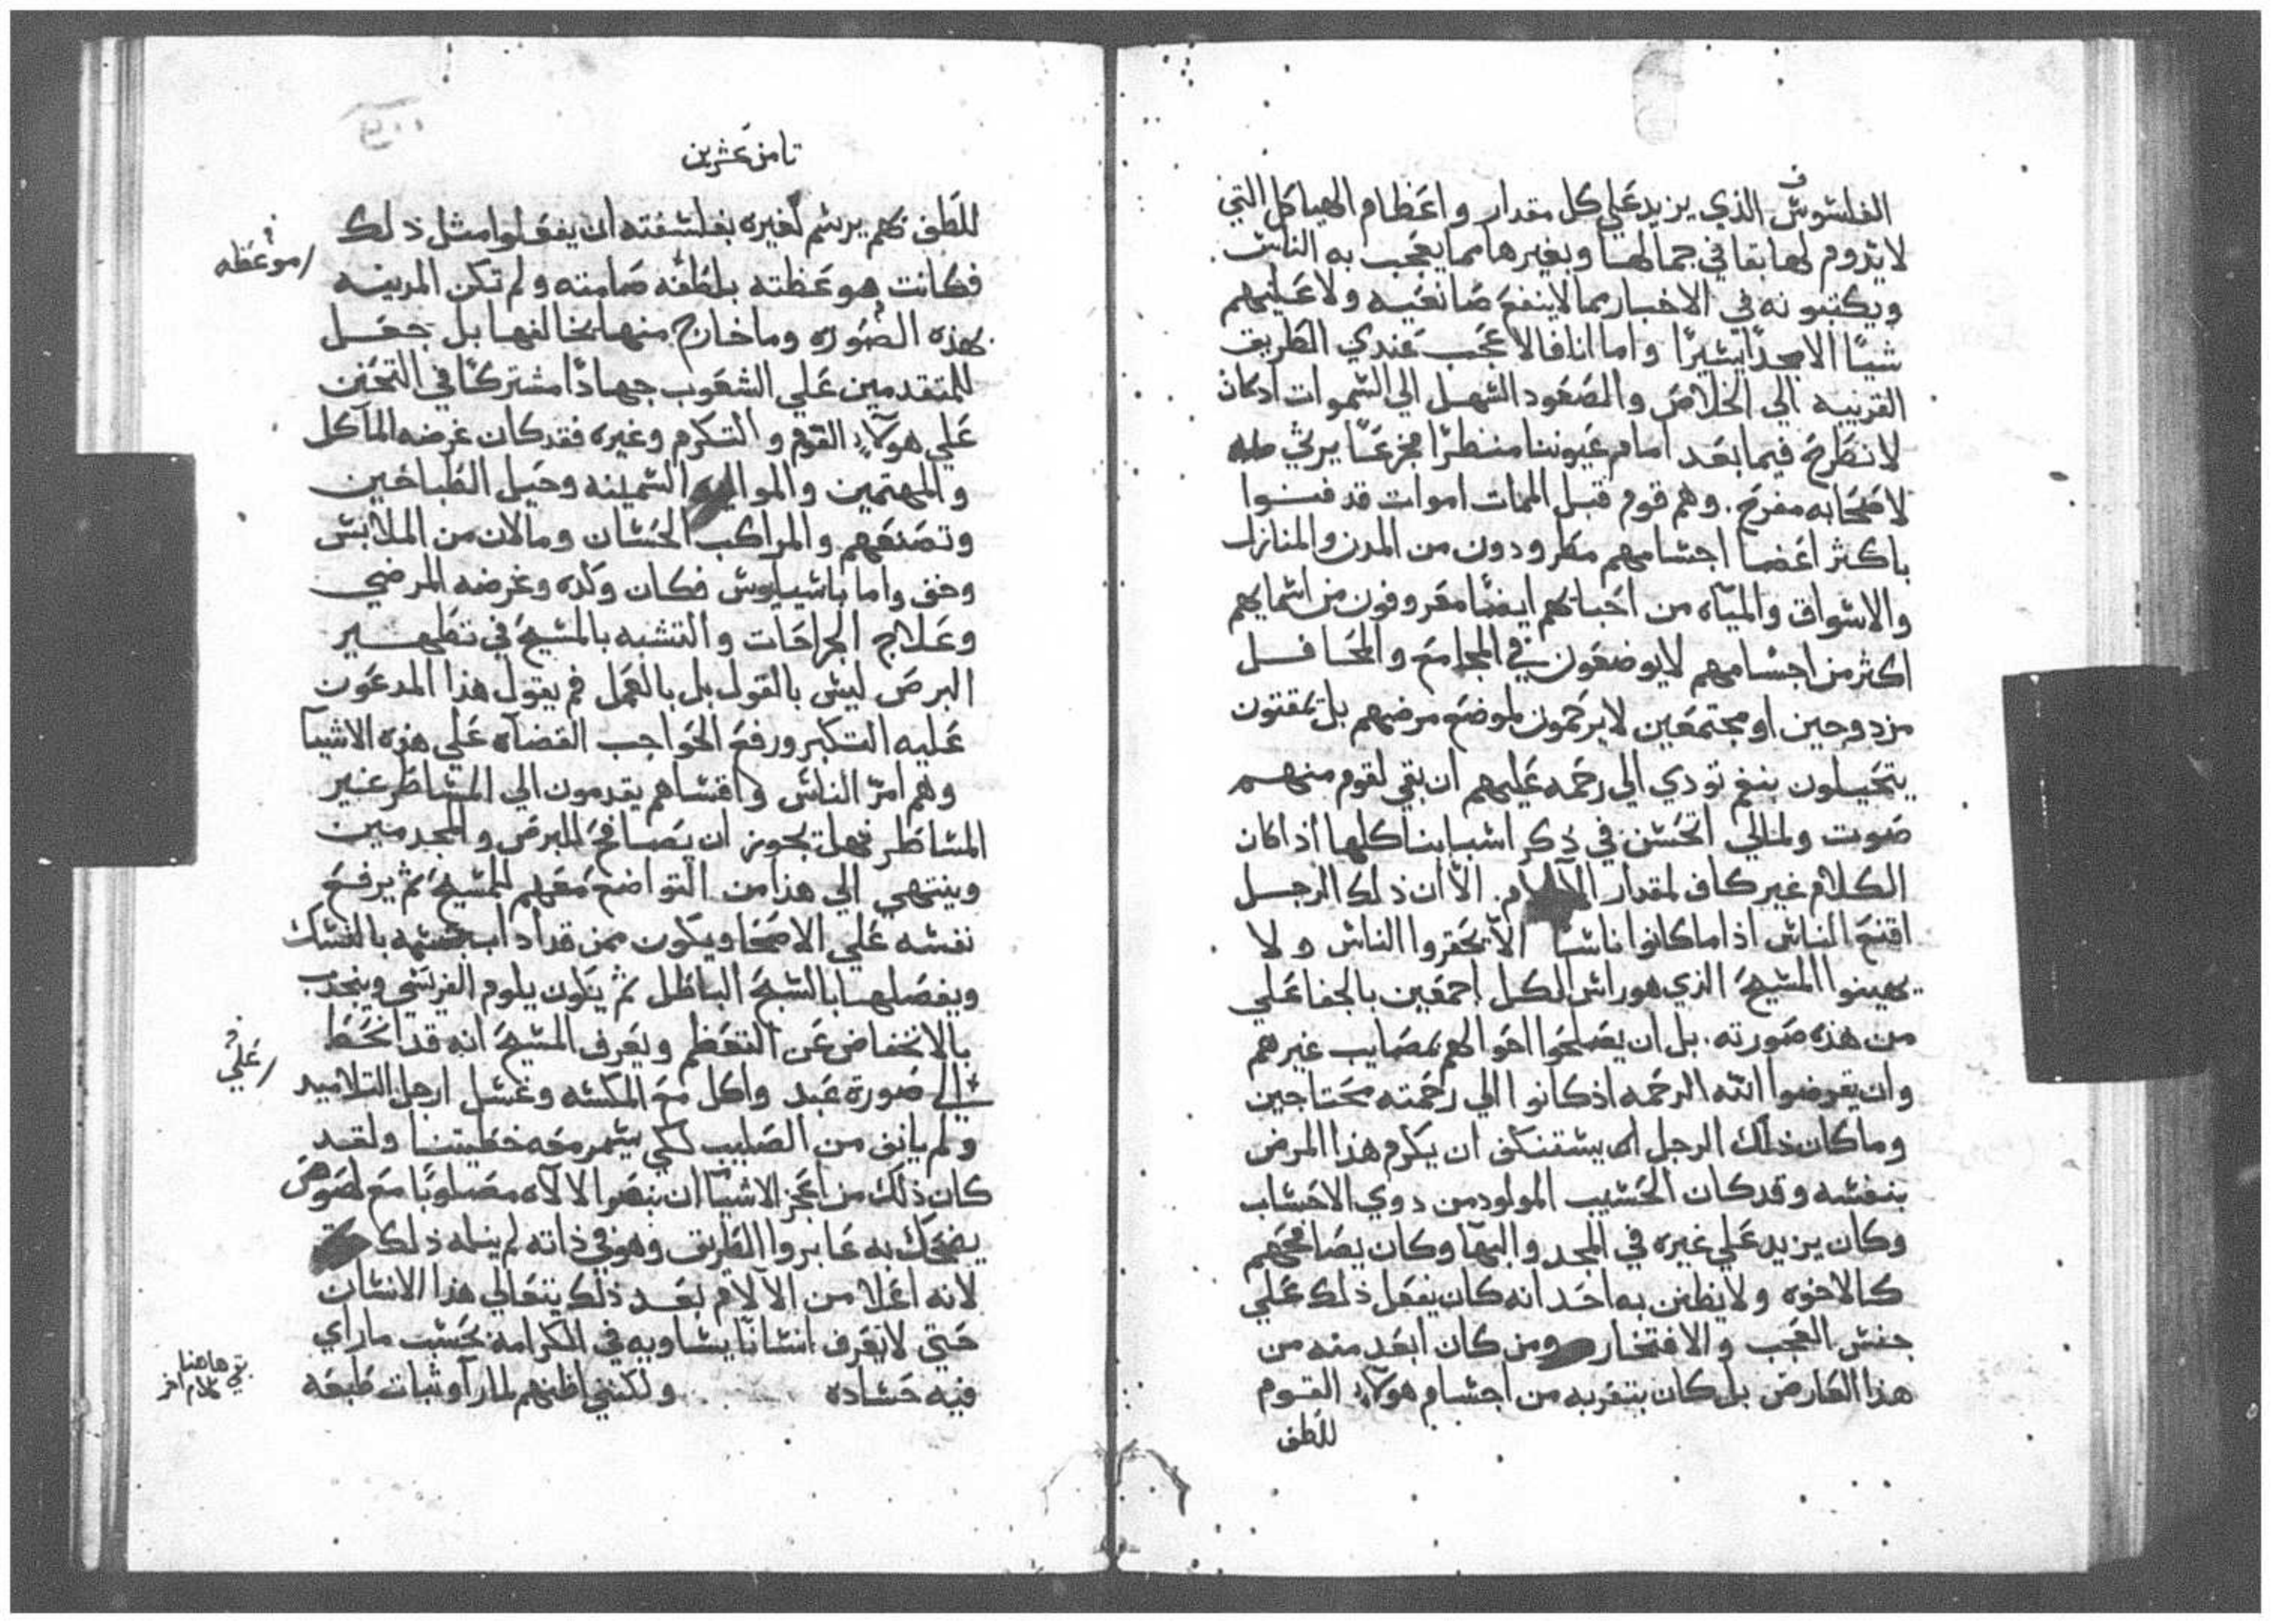 الفلسوس الذي يزيد علي كل مقدار واعظام الهياكل التي
لا يدوم لها بقا في جمالها وبغيرها مما يعجب به الناس
ويكتبونه في الاخبار مما لا ينفع صانعيه ولا عليهم
شيًا الا مجدًا يسيرًا واما انا فالاعجب عندي الطريق
القريبه الي الخلاص والصعود السهل الي السموات اذ كان
لا نطرح فيما بعد امام عيوننا منظرًا مجزعًا يرثي
لاصحابه مفرح. وهم قوم قبل الممات اموات قد فنوا
باكثر اعضا اجسامهم مطرودون من المدن والمنازل
والاسواق والمياه من احبابهم ايضًا معروفون من اسمايهم
اكثر من اجسامهم لا يوضعون في المجامع والمحافل
مزدوجين او مجتمعين لا يرحمون لموضع مرضهم بل يمقتون
يتحيلون بنغم تودي الي رحمه عليهم ان بقي لقوم منهم
صوت ولمالي اتحسن في ذكر اسبابنا كلها اذا كان
الكلام غير كاف لمقدار الالام. الا ان ذلك الرجل
اقنع الناس اذا ما كانوا ناسًا الا يحقروا الناس ولا
يهينوا المسيح الذي هو راس الكل اجمعين بالجفا علي
من هذه صورته. بل ان يصلحوا احوالهم بمصايب غيرهم
وان يقرضوا الله الرحمه اذ كانوا الي رحمته محتاجين
وما كان ذلك الرجل يستنكف ان يكرم هذا المرض
بنفسه وقد كان الحسيب المولود من دوي الاحساب
وكان يزيد علي غيره في المجد والبها وكان يصافحهم
كالاخوه ولا يظنن به احد انه كان يفعل ذلك علي
جنس العجب والافتخار ومن كان ابعد منه من
هذا العارض بل كان يتقربه من اجسام هولاء القوم
للطف
ثامن عشرين
للطف بهم يرسم لغيره بفلسفته ان يفعلوا مثل ذلك
فكانت هو عظته بلطفه صامته ولم تكن المدينه
موعظه
بهذه الصوره وما خارج منها يخالفها بل جعل
للمتقدمين علي الشعوب جهادًا مشتركًا في التحنن
علي هولاء القوم والتكرم وغيره فقد كان غرضه المآكل
والمهتمين والموايد السمينه وحيل الطباخين
وتصنعهم والمراكب الحسان وما لان من الملابس
وخف واما باسيليوس فكان وكده وغرضه المرضي
وعلاج الجراحات والتشبه بالمسيح في تطهير
البرص ليس بالقول بل بالعمل فم يقول هذا المدعون
عليه التكبر ورفع الحواجب القضاه علي هذه الاشيآ
وهم امر الناس واقساهم يقدمون الي المساطر غير
المساطر فهل يجوز ان يصافح البرص والمجدمين
وينتهي الي هذا من التواضع معهم للمسيح ثم يرفع
نفسه علي الاصحا ويكون ممن قد اداب جسمه بالنسك
ويفصلها بالسبح الباطل ثم يكون يلوم الفريسي ويتحدث
بالانخفاض عن التعظم ويعرف المسيح انه قد انحط
علي
الي صورة عبد واكل مع المكسه وغسل ارجل التلاميد
ولم يانف من الصليب لكي يسمر معه خطيتنا ولقد
كان ذلك من اعجز الاشيآ ان بنصروا الالاه مصلوبًا مع لصوص
يضحك به عابروا الطريق وهو في ذاته لم ينله ذلك
لانه اعلا من الالام بعد ذلك يتعالي هذا الانسان
حتي لا يعرف انسانًا يساويه في الكرامه بحسب ما راي
فيه حساده ولكنني اظنهم لما راو ثبات طبعه
بقي هاهنا
كلام اخر